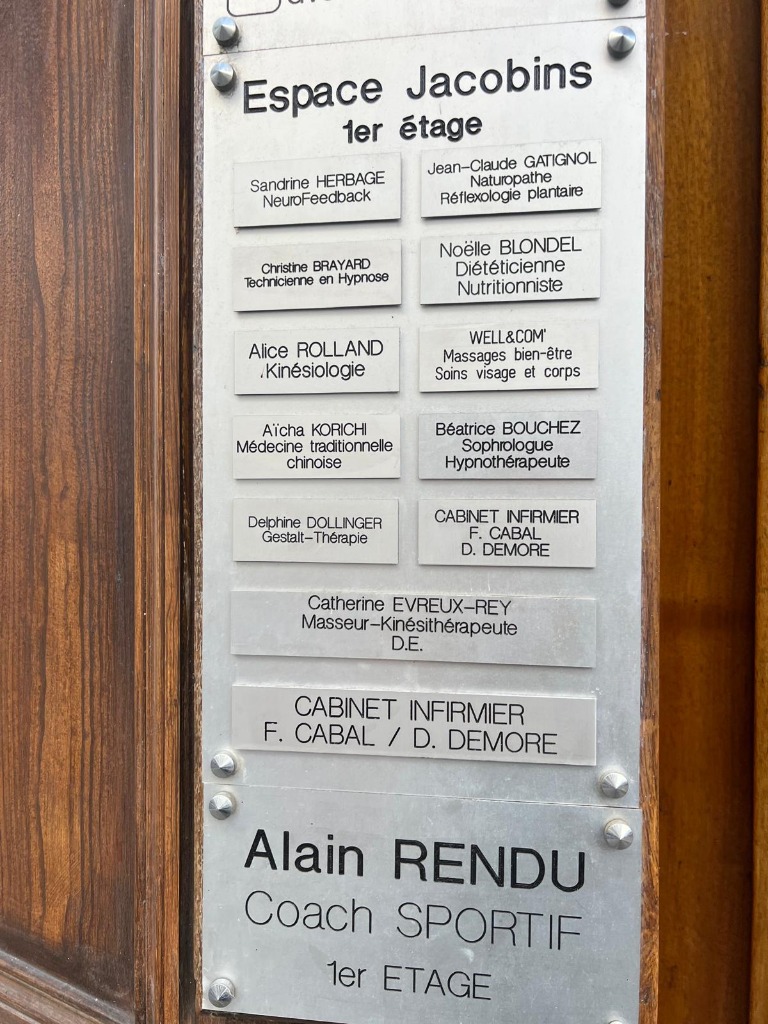 Espace Jacobins
1er étage
Sandrine HERBAGE
NeuroFeedback
Jean-Claude GATIGNOL
Naturopathe
Réflexologie plantaire
Christine BRAYARD
Technicienne en Hypnose
Noëlle BLONDEL
Diététicienne
Nutritionniste
Alice ROLLAND
Kinésiologie
WELL&COM'
Massages bien-être
Soins visage et corps
Aïcha KORICHI
Médecine traditionnelle
chinoise
Béatrice BOUCHEZ
Sophrologue
Hypnothérapeute
Delphine DOLLINGER
Gestalt-Thérapie
CABINET INFIRMIER
F. CABAL
D. DEMORE
Catherine EVREUX-REY
Masseur-Kinésithérapeute
D.E.
CABINET INFIRMIER
F. CABAL / D. DEMORE
Alain RENDU
Coach SPORTIF
1er ETAGE